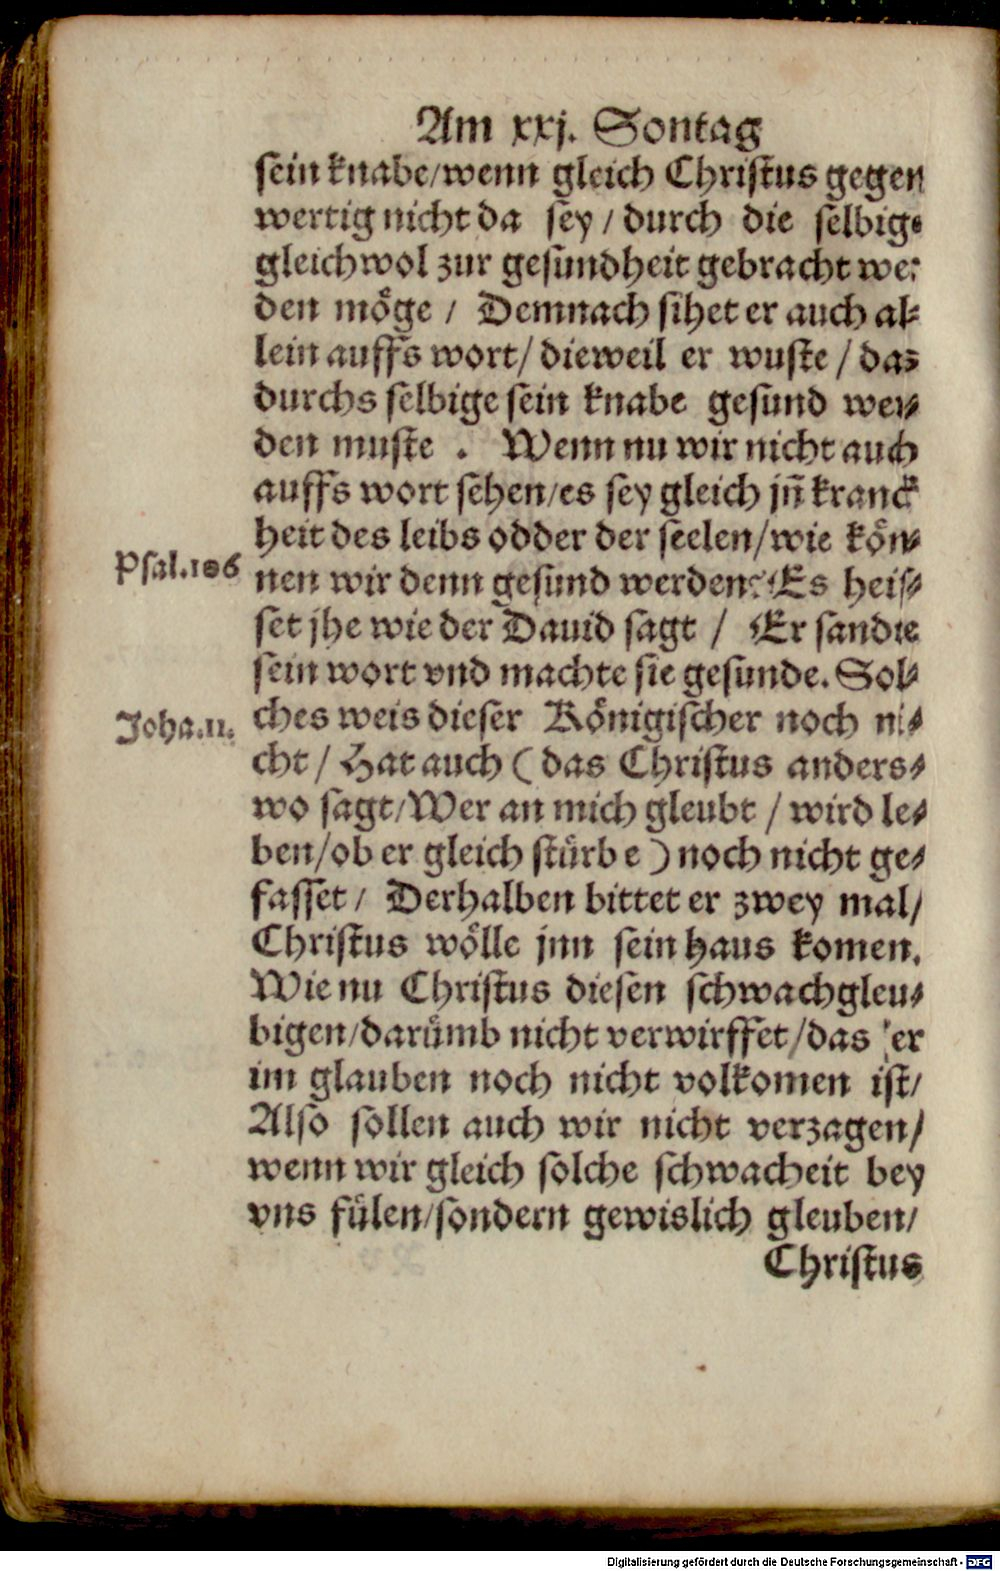 Am xxj. Sontag
sein knabe/wenn gleich Christus gegen
wertig nicht da sey / durch die selbige
gleichwol zur gesundheit gebracht wer
den möge / Demnach sihet er auch al⸗
lein auffs wort/ dieweil er wuste / das
durchs selbige sein knabe gesund wer⸗
den muste . Wenn nu wir nicht auch
auffs wort sehen/es sey gleich jñ kranck
heit des leibs odder der seelen/wie kön⸗
Psal.106
nen wir denn gesund werden? Es heis⸗
set jhe wie der Dauid sagt / Er sandte
sein wort vnd machte sie gesunde. Sol⸗
Joha.11.
ches weis dieser Königischer noch ni⸗
cht / Hat auch ( das Christus anders⸗
wo sagt/Wer an mich gleubt / wird le⸗
ben/ob er gleich stürbe ) noch nicht ge⸗
fasset / Derhalben bittet er zwey mal/
Christus wölle jnn sein haus komen.
Wie nu Christus diesen schwachgleu⸗
bigen/darümb nicht verwirffet/das er
im glauben noch nicht volkomen ist/
Also sollen auch wir nicht verzagen/
wenn wir gleich solche schwacheit bey
vns fülen/sondern gewislich gleuben/
Christus
Digitalisierung gefördert durch die Deutsche Forschungsgemeinschaft - DFG